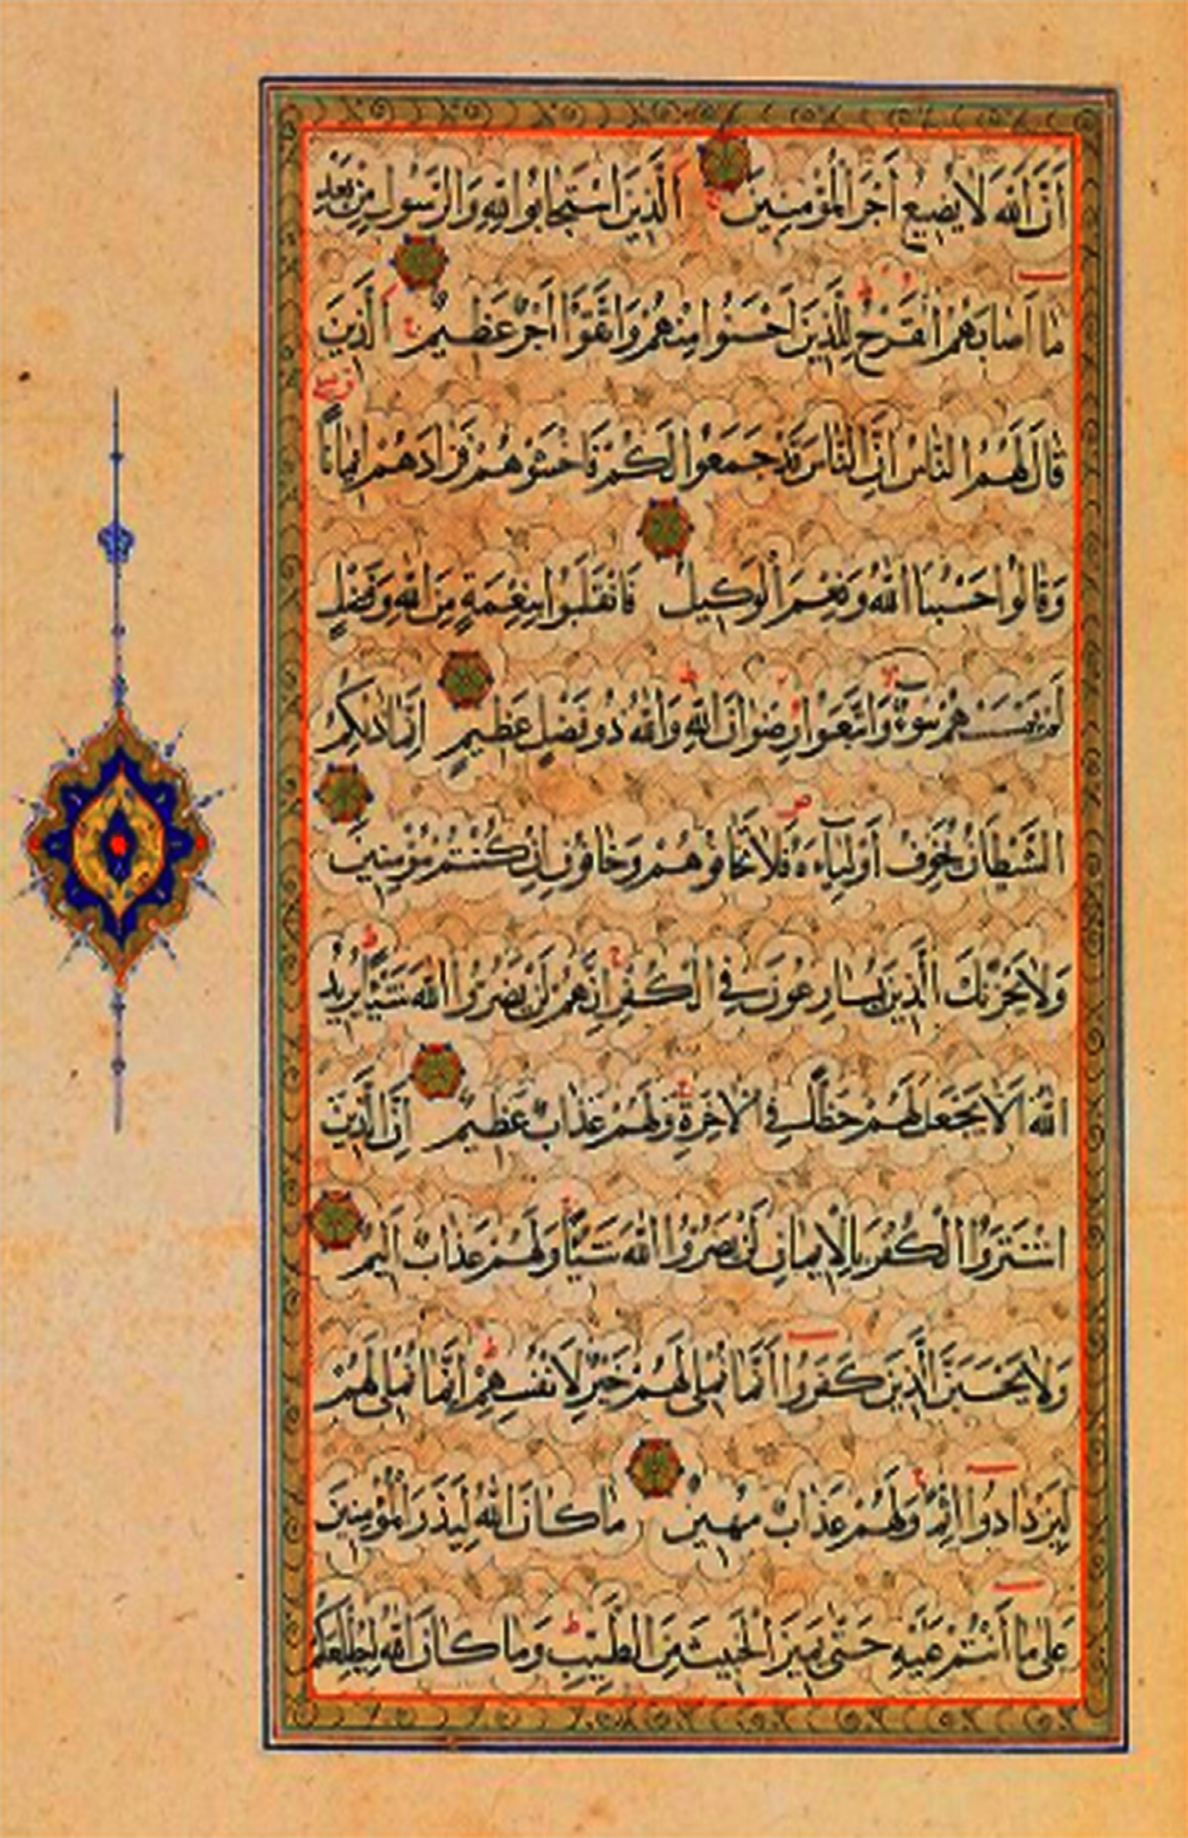 أَنَّ اللَّهَ لَا يُضِيعُ أَجْرَ الْمُؤْمِنِينَ الَّذِينَ اسْتَجَابُوا لِلَّهِ وَالرَّسُولِ مِنْ بَعْدِ
مَا أَصَابَهُمُ الْقَرْحُ لِلَّذِينَ أَحْسَنُوا مِنْهُمْ وَاتَّقَوْا أَجْرٌ عَظِيمٌ الَّذِينَ
قَالَ لَهُمُ النَّاسُ إِنَّ النَّاسَ قَدْ جَمَعُوا لَكُمْ فَاخْشَوْهُمْ فَزَادَهُمْ إِيمَانًا
وَقَالُوا حَسْبُنَا اللَّهُ وَنِعْمَ الْوَكِيلُ فَانْقَلَبُوا بِنِعْمَةٍ مِنَ اللَّهِ وَفَضْلٍ
لَمْ يَمْسَسْهُمْ سُوءٌ وَاتَّبَعُوا رِضْوَانَ اللَّهِ وَاللَّهُ ذُو فَضْلٍ عَظِيمٍ إِنَّمَا ذَلِكُمُ
الشَّيْطَانُ يُخَوِّفُ أَوْلِيَاءَهُ فَلَا تَخَافُوهُمْ وَخَافُونِ إِنْ كُنْتُمْ مُؤْمِنِينَ
وَلَا يَحْزُنْكَ الَّذِينَ يُسَارِعُونَ فِي الْكُفْرِ إِنَّهُمْ لَنْ يَضُرُّوا اللَّهَ شَيْئًا يُرِيدُ
اللَّهُ أَلَّا يَجْعَلَ لَهُمْ حَظًّا فِي الْآخِرَةِ وَلَهُمْ عَذَابٌ عَظِيمٌ إِنَّ الَّذِينَ
اشْتَرَوُا الْكُفْرَ بِالْإِيمَانِ لَنْ يَضُرُّوا اللَّهَ شَيْئًا وَلَهُمْ عَذَابٌ أَلِيمٌ
وَلَا يَحْسَبَنَّ الَّذِينَ كَفَرُوا أَنَّمَا نُمْلِي لَهُمْ خَيْرٌ لِأَنْفُسِهِمْ إِنَّمَا نُمْلِي لَهُمْ
لِيَزْدَادُوا إِثْمًا وَلَهُمْ عَذَابٌ مُهِينٌ مَا كَانَ اللَّهُ لِيَذَرَ الْمُؤْمِنِينَ
عَلَى مَا أَنْتُمْ عَلَيْهِ حَتَّى يَمِيزَ الْخَبِيثَ مِنَ الطَّيِّبِ وَمَا كَانَ اللَّهُ لِيُطْلِعَكُمْ